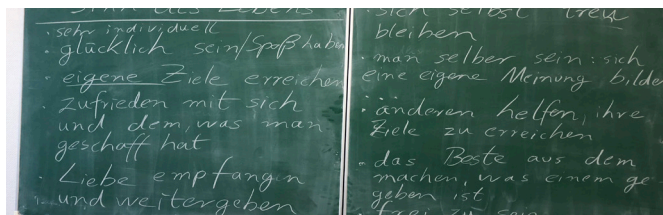 Sinn des Lebens
· sehr individuell
· glücklich sein/Spaß haben
· eigene Ziele erreichen
· zufrieden mit sich
und dem, was man
geschaff hat
· Liebe empfangen
und weitergeben
· sich selbst treu
bleiben
· man selber sein: sich
eine eigene Meinung bilde
· anderen helfen, ihre
Ziele zu erreichen
· das Beste aus dem
machen, was einem ge
geben ist
· frei zu sein